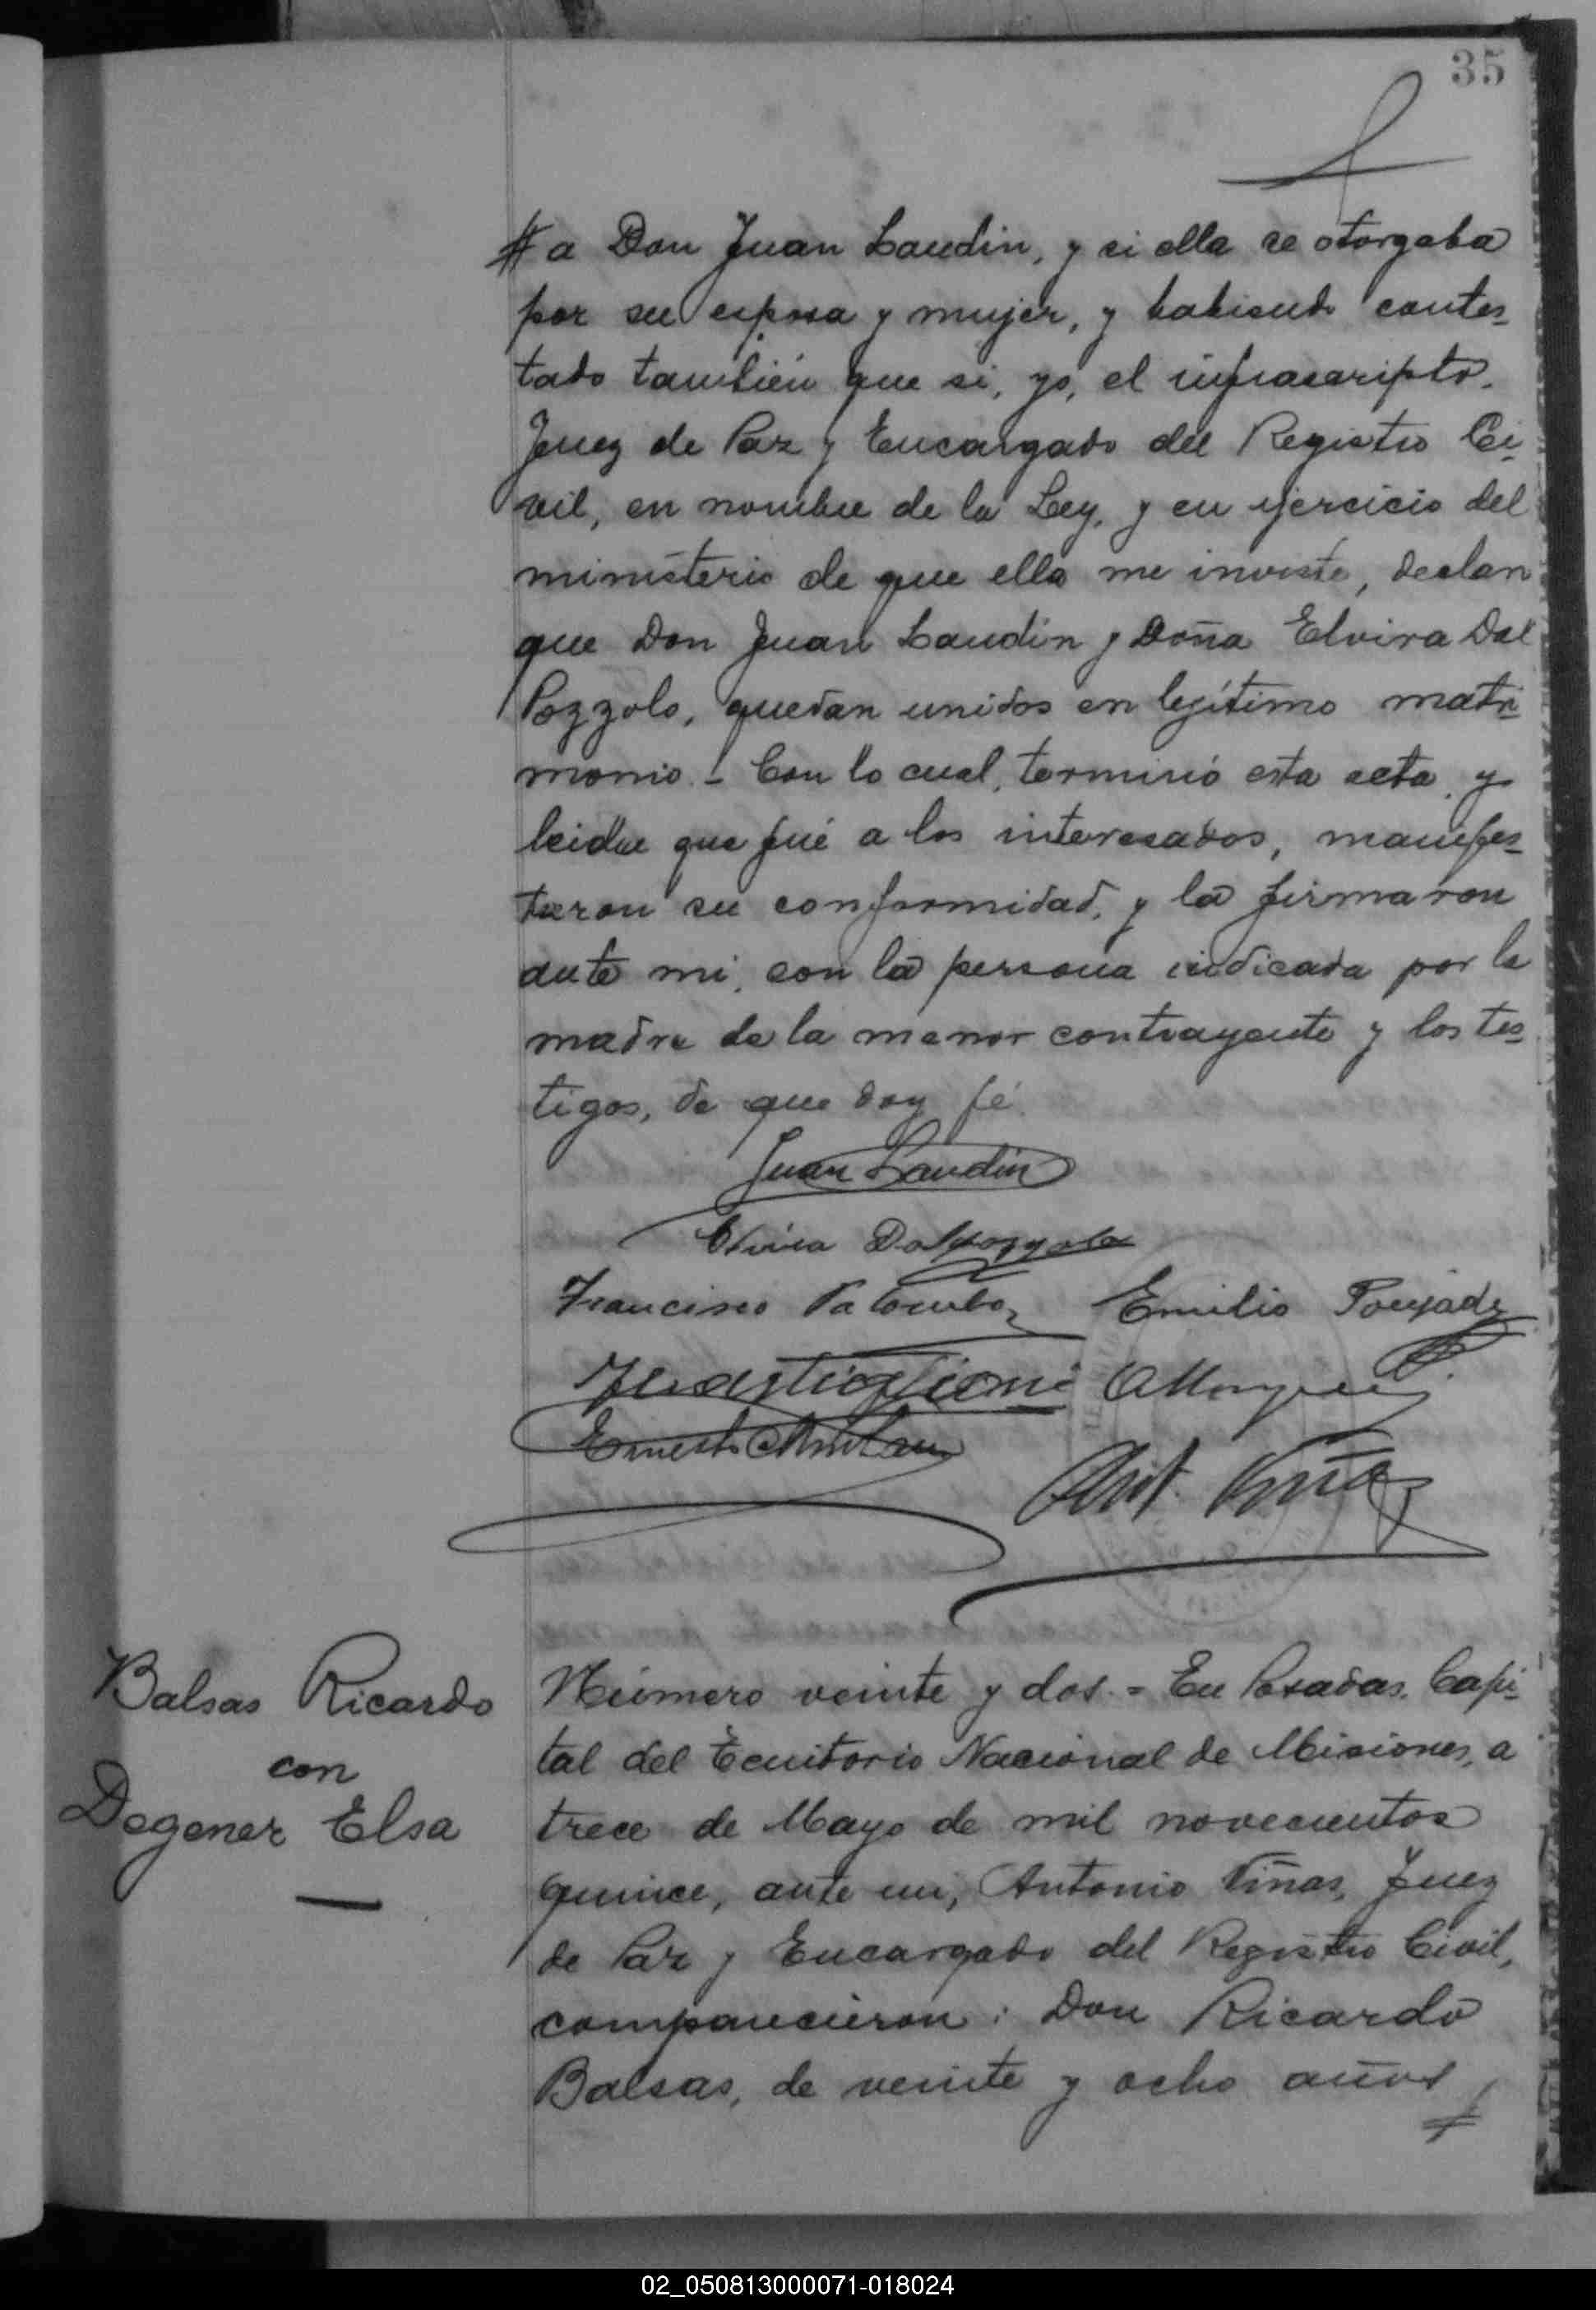 35
# a Don Juan Landin, y si ella se otorgaba
por su esposa y mujer, y habiendo contes-
tado también que si, yo, el infrascripto.
Juez de Paz y Encargado del Registro Ci-
vil, en nombre de la Ley, y en ejercicio del
ministerio de que ella me inviste, declaro
que Don Juan Landin y Doña Elvira Dal
Pozzolo, quedan unidos en legítimo matri-
monio. - Con lo cual, terminó esta acta, y
leida que fué a los interesados, manifes-
taron su conformidad, y la firmaron
ante mi, con la persona indicada por la
madre de la menor contrayente y los tes-
tigos, de que doy fé.
Juan Landin
Elvira Dalpozzolo
Francisco Palombo Emilio Poujade
Ernesto
Ant. Viñas
Balsas Ricardo
con
Degener Elsa
Número veinte y dos. = En Posadas, Capi-
tal del Territorio Nacional de Misiones, a
trece de Mayo de mil novecientos
quince, ante mi, Antonio Viñas, Juez
de Paz y Encargado del Registro Civil,
comparecieron: Don Ricardo
Balsas, de veinte y ocho años,
#
02_050813000071-018024